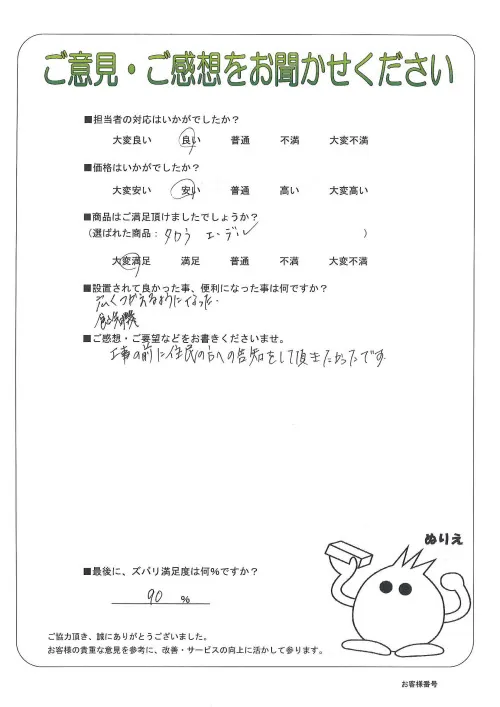 ご意見・ご感想をお聞かせください
■担当者の対応はいかがでしたか？
大変良い 良い 普通 不満 大変不満
■価格はいかがでしたか？
大変安い 安い 普通 高い 大変高い
■商品はご満足頂けましたでしょうか？
（選ばれた商品： タカラ エーデル ）
大変満足 満足 普通 不満 大変不満
■設置されて良かった事、便利になった事は何ですか？
広くつかえるようになった.
■ご感想・ご要望などをお書きくださいませ。
工事の前に住民の方への告知をして頂きたかったです
ぬりえ
■最後に、ズバリ満足度は何％ですか？
90 ％
ご協力頂き、誠にありがとうございました。
お客様の貴重な意見を参考に、改善・サービスの向上に活かして参ります。
お客様番号